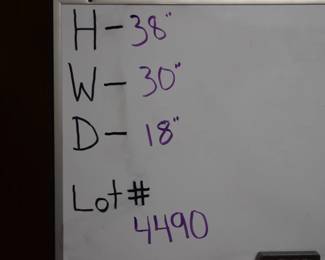 H-38"
W-30"
D-18"
Lot#
4490